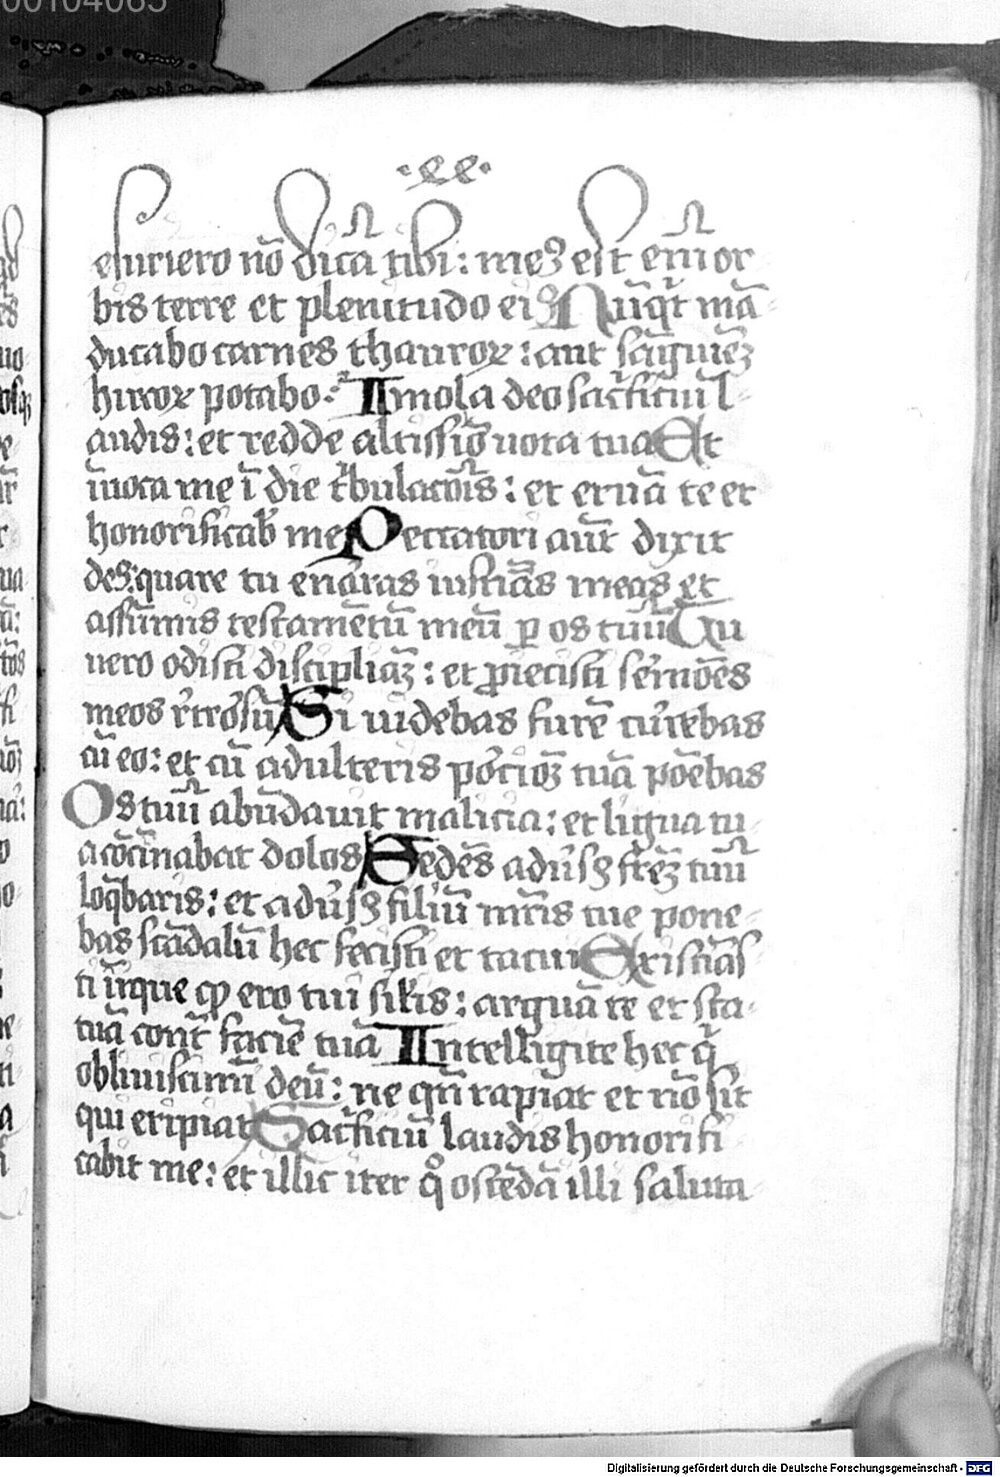 00104065
·xx·
esuriero nō dicā tibi: meꝫ est eni̅ or
bis terre et plenitudo eiꝰ Nūqͥt mā
ducabo carnes thauroꝝ: aut sāguīeꝫ
hircoꝝ potabo: Imola deo sacͥficiū l
audis: et redde altissīo uota tua Et
īuoca me ī die tͥbulacōīs: et eruā te et
honorificab̄ me Peccatori aūt dixit
des: quare tu enarras iusticās meas et
assūmis testamētū meū ꝑ os tuū Tu
uero odisti discipliāꝫ: et proiecisti sermōes
meos rͤtrorsū Si uidebas furē currebas
cū eo: et cū adulteris porcioꝫ tuā poēbas
Os tuū abūdauit malicia: et ligua tu
a cōcīnabat dolos Sedēs adūsꝫ frēꝫ tuū
loq̄baris: et adūsꝫ filiū mr̄is tue pone
bas scādalū hec fecisti et tacui Existīas
ti īique ꝙ ero tui sikis: arguā te et sta
tuā contͣ faciē tuā Intelligite hec qͥ
obliuiscimī deū: ne qn̄ rapiat et nō sit
qui eripiat Sacͥficiū laudis honorifi
cabit me: et illic iter qͦ ostēdā illi saluta
Digitalisierung gefördert durch die Deutsche Forschungsgemeinschaft - DFG